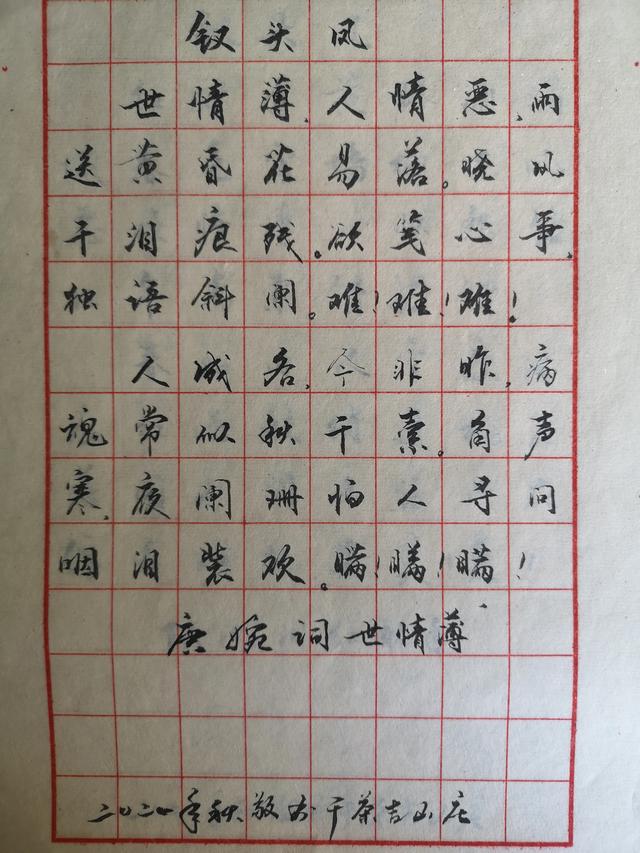 钗头凤
世情薄,人情恶,雨
送黄昏花易落。晓风
干泪痕残。欲笺心事,
独语斜阑。难!难!难!
人成各,今非昨,病
魂常似秋千索。角声
寒,夜阑珊怕人寻问
咽泪装欢。瞒!瞒!瞒!
唐婉词世情薄
二〇二〇年秋敬书于茶吉山庄